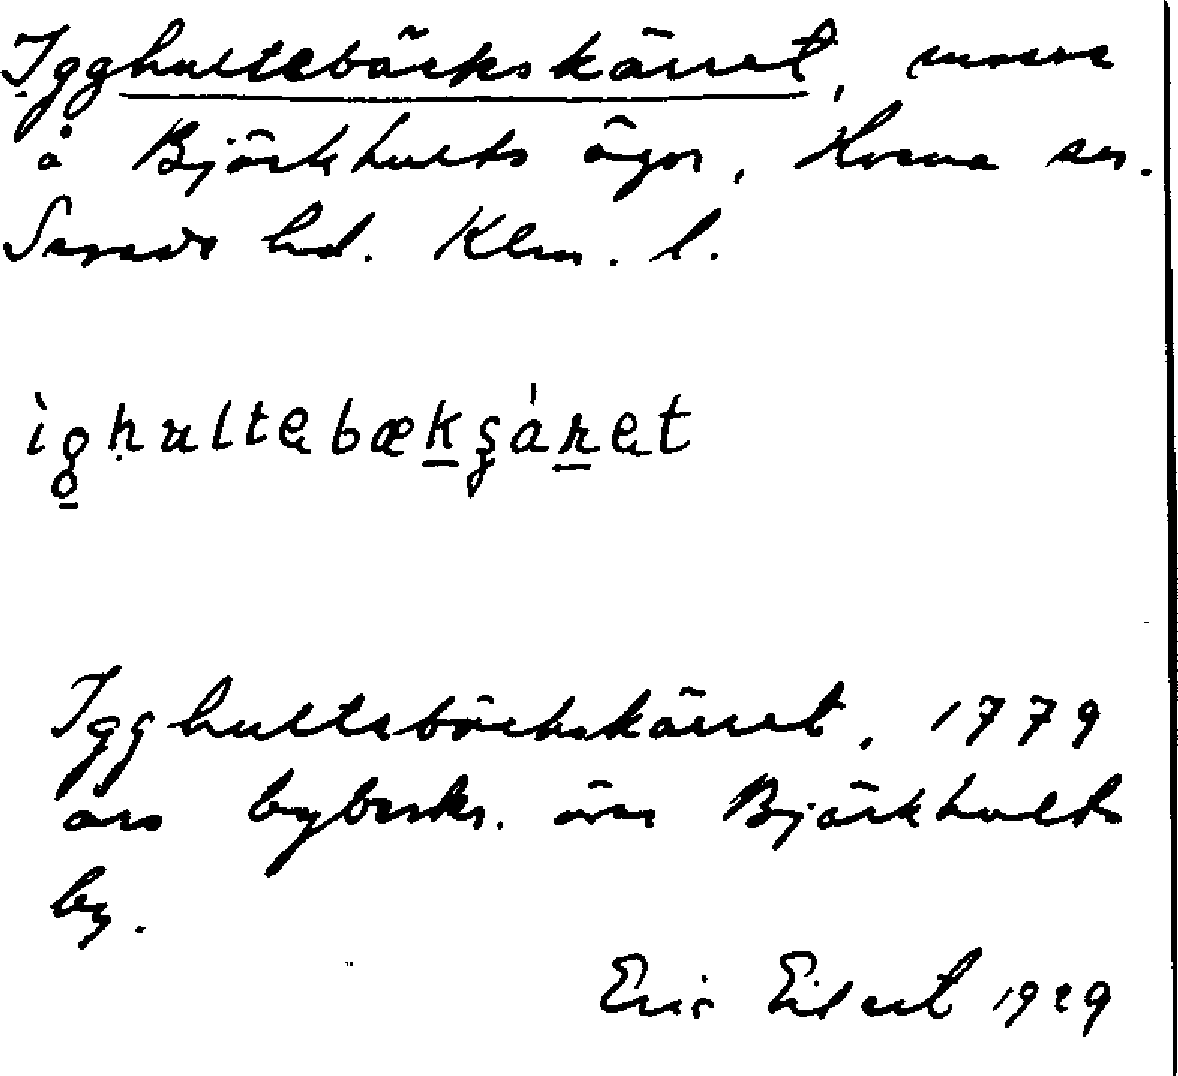 Igghultebäckskärret, mosse
å Björkhults ägor, Hvena sn.
Sevede hd. Klm. l.
ìg̱hultebæḵşáṟet
Igghultebäckskärret, 1779
års bybeskr. över Björkhults
by.
Eric Eilert 1929